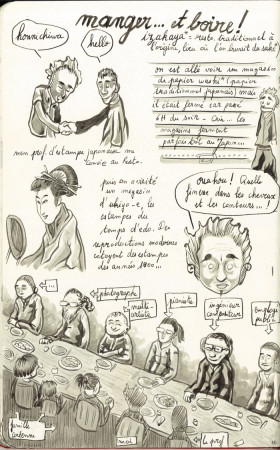 manger... et boire!
konnichiwa
hello
izakaya = resto traditionnel à
l'origine, lieu où l'on buvait du saké!
on est allé voir un magasin
de papier washi (papier
traditionnel japonais) mais
il était fermé car passé
6H du soir - Oui... les
magasins ferment
parfois tôt au Japon...
mon prof d'estampe japonaise m'a
emmené au resto.
puis on a visité
un magasin
d'ukiyo-e, les
estampes du
temps d'edo. Des
reproductions modernes
cotoyent des estampes
des années 1800...
Quelle
finesse dans les cheveux
et les contours...!
...
photographe
multi-
artiste
pianiste
ingénieur
compositeur
employé
public
famille
moi
le prof